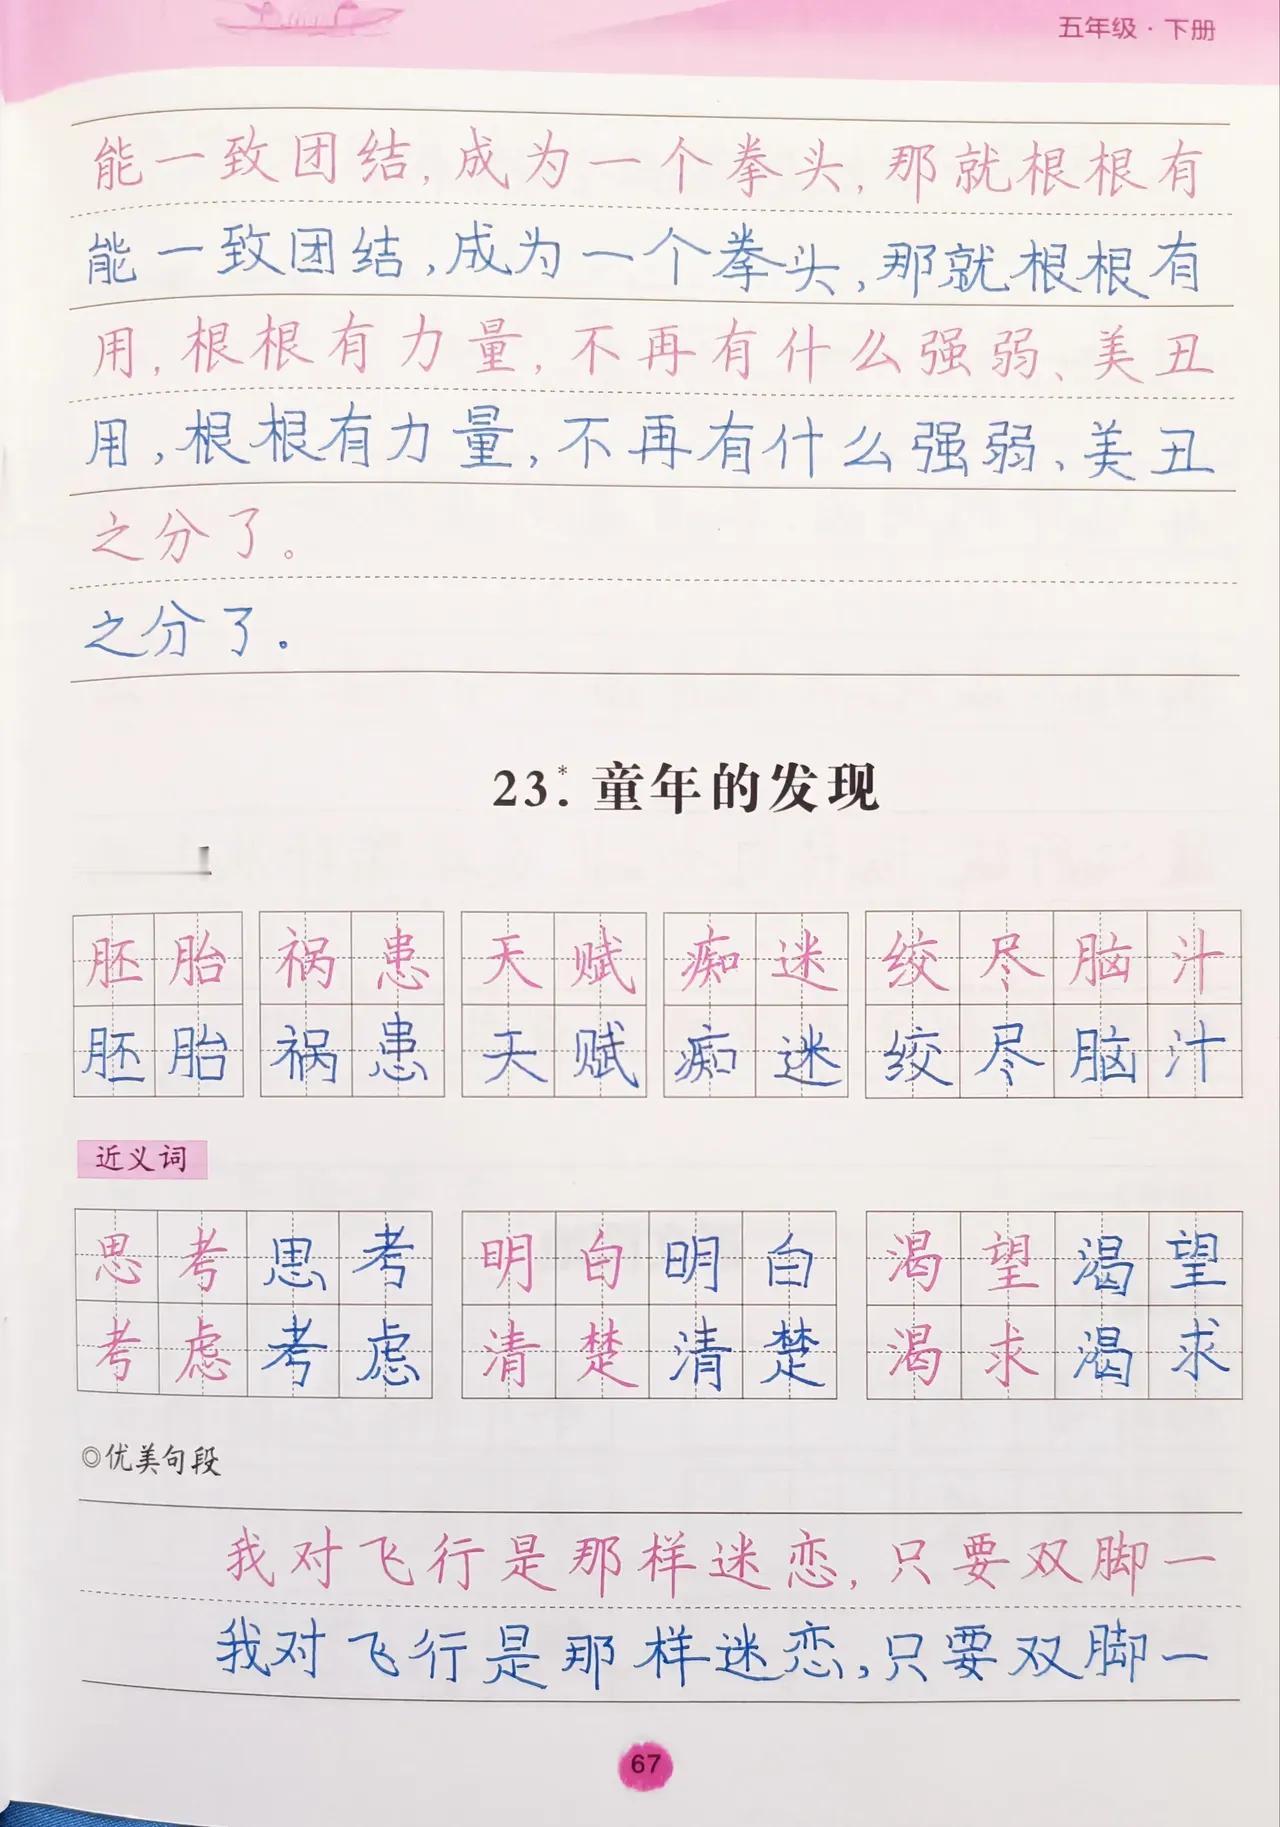 五年级·下册
能一致团结,成为一个拳头,那就根根有
能一致团结,成为一个拳头,那就根根有
用,根根有力量,不再有什么强弱、美丑
用,根根有力量,不再有什么强弱、美丑
之分了。
之分了.
23*. 童年的发现
胚胎 祸患 天赋 痴迷 绞尽脑汁
胚胎 祸患 天赋 痴迷 绞尽脑汁
近义词
思考思考 明白明白 渴望渴望
考虑考虑 清楚清楚 渴求渴求
◎优美句段
我对飞行是那样迷恋,只要双脚一
我对飞行是那样迷恋,只要双脚一
67